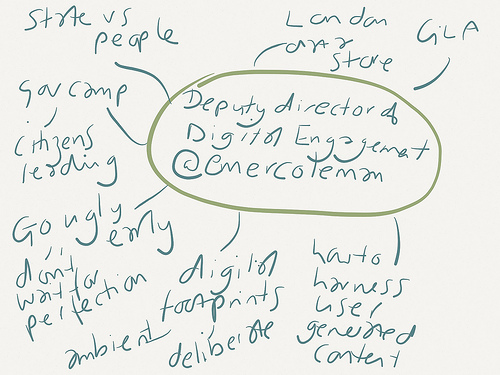 State vs
people
London
data
store
GLA
Gov camp
citizens
leading
Deputy director of
Digital Engagement
@emercoleman
Go ugly
early
don't
wait for
perfection
digital
footprints
ambient
deliberate
how to
harness
user
generated
content